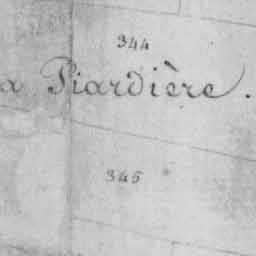 344
a Piardière.
345